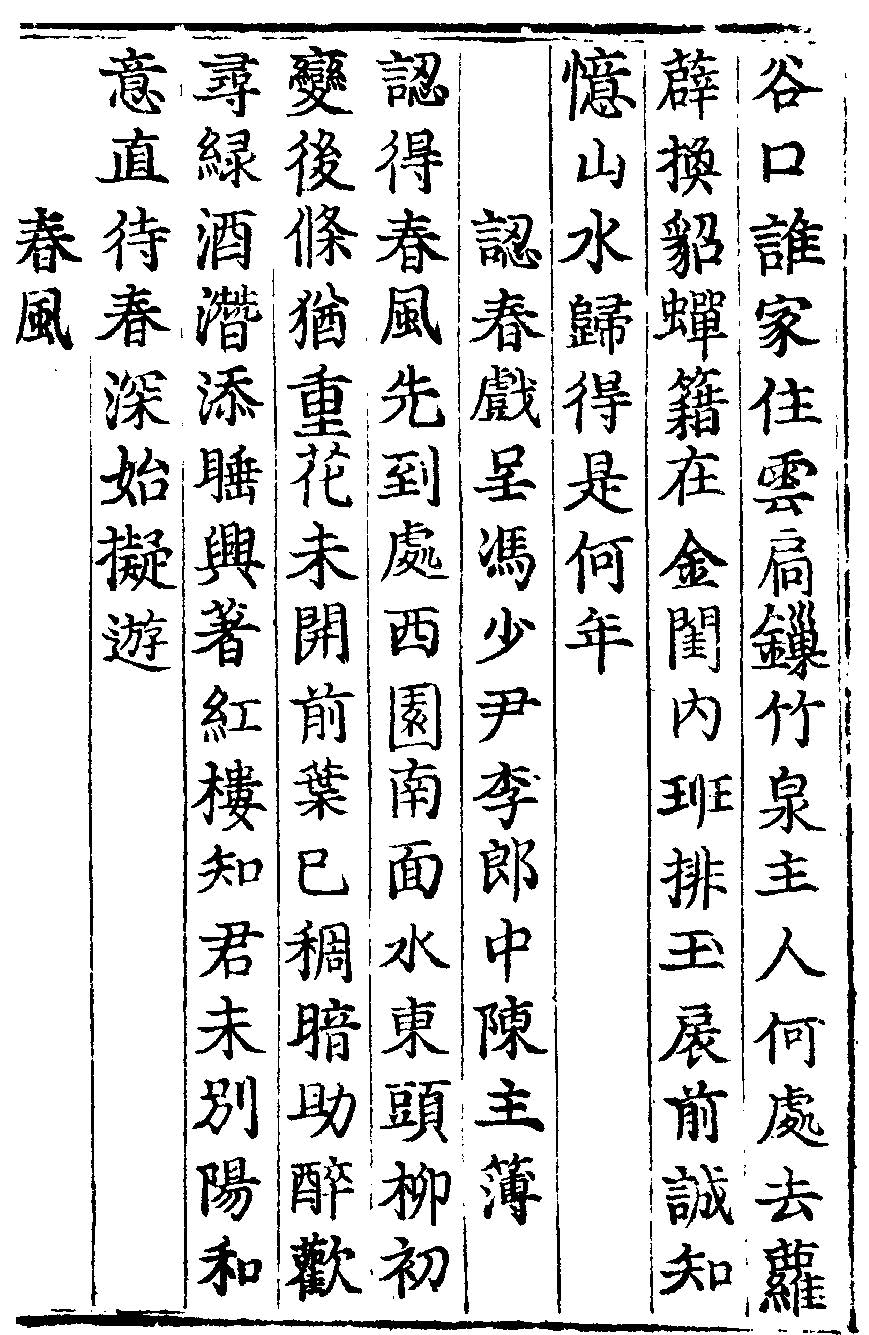 谷口誰家住雲扃鏁竹泉主人何處去蘿
薜換貂蟬籍在金閨内班排玉扆前誠知
憶山水歸得是何年
認春戲呈馮少尹李郎中陳主薄
認得春風先到處西園南面水東頭柳初
變後條猶重花未開前葉已稠暗助醉歡
尋緑酒潛添睡興著紅樓知君未別陽和
意直待春深始擬遊
春風